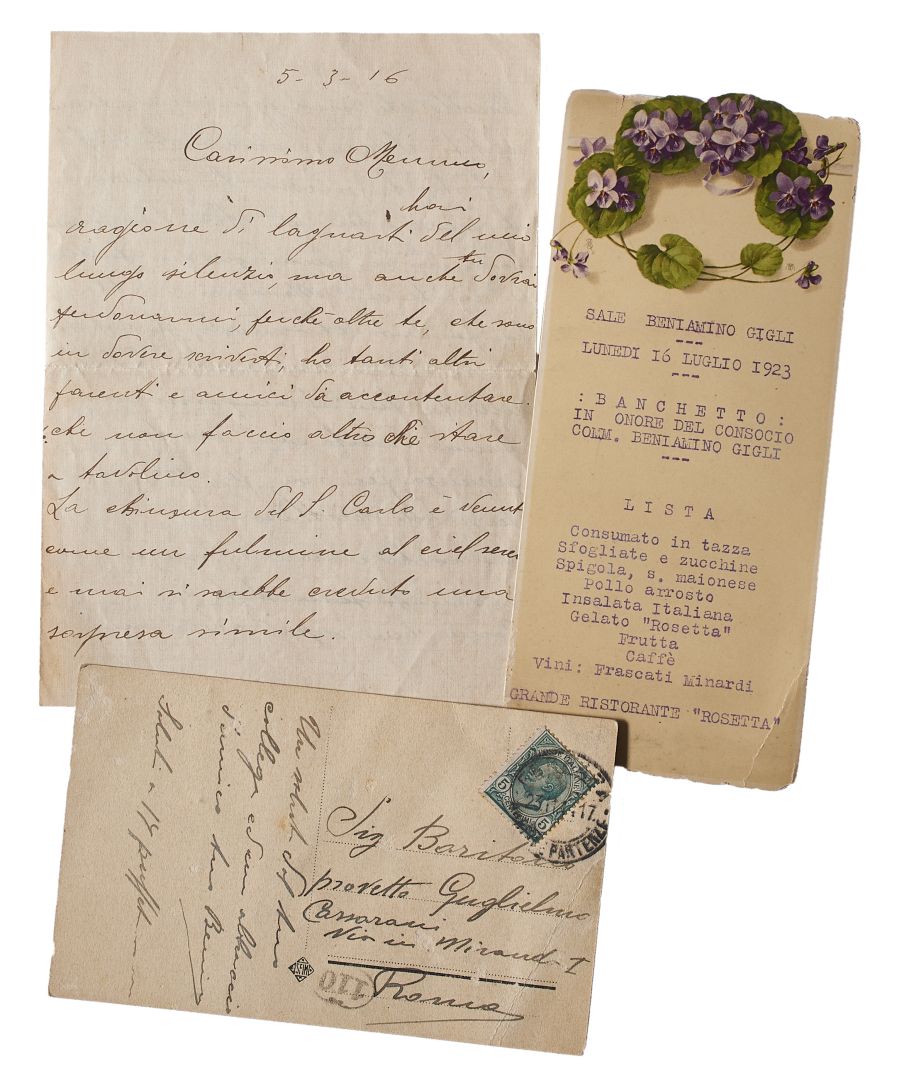 5-3-16
Carissimo
hai
ragione di lagnarti del mio
lungo silenzio, ma anche tu dovrai
perdonarmi, perchè oltre te, che sono
in dovere scriverti, ho tanti altri
parenti e amici da accontentare.
che non faccio altro che stare
a tavolino.
La chiusura del S. Carlo è venut
come un fulmine al ciel seren
e mai si sarebbe creduto una
sorpresa simile.
SALE BENIAMINO GIGLI
---
LUNEDI 16 LUGLIO 1923
---
: B A N C H E T T O :
IN ONORE DEL CONSOCIO
COMM. BENIAMINO GIGLI
---
L I S T A
Consumato in tazza
Sfogliate e zucchine
Spigola, s. maionese
Pollo arrosto
Insalata Italiana
Gelato "Rosetta"
Frutta
Caffè
Vini: Frascati Minardi
GRANDE RISTORANTE "ROSETTA"
Un saluto dal tuo
collega ed un abbraccio
d'amico tuo Benia
Saluti a
5 5
17.
PARTENZE
Sig Baritono
provetto Guglielmo
Cassarani
Via in Mirand-I
Roma
110